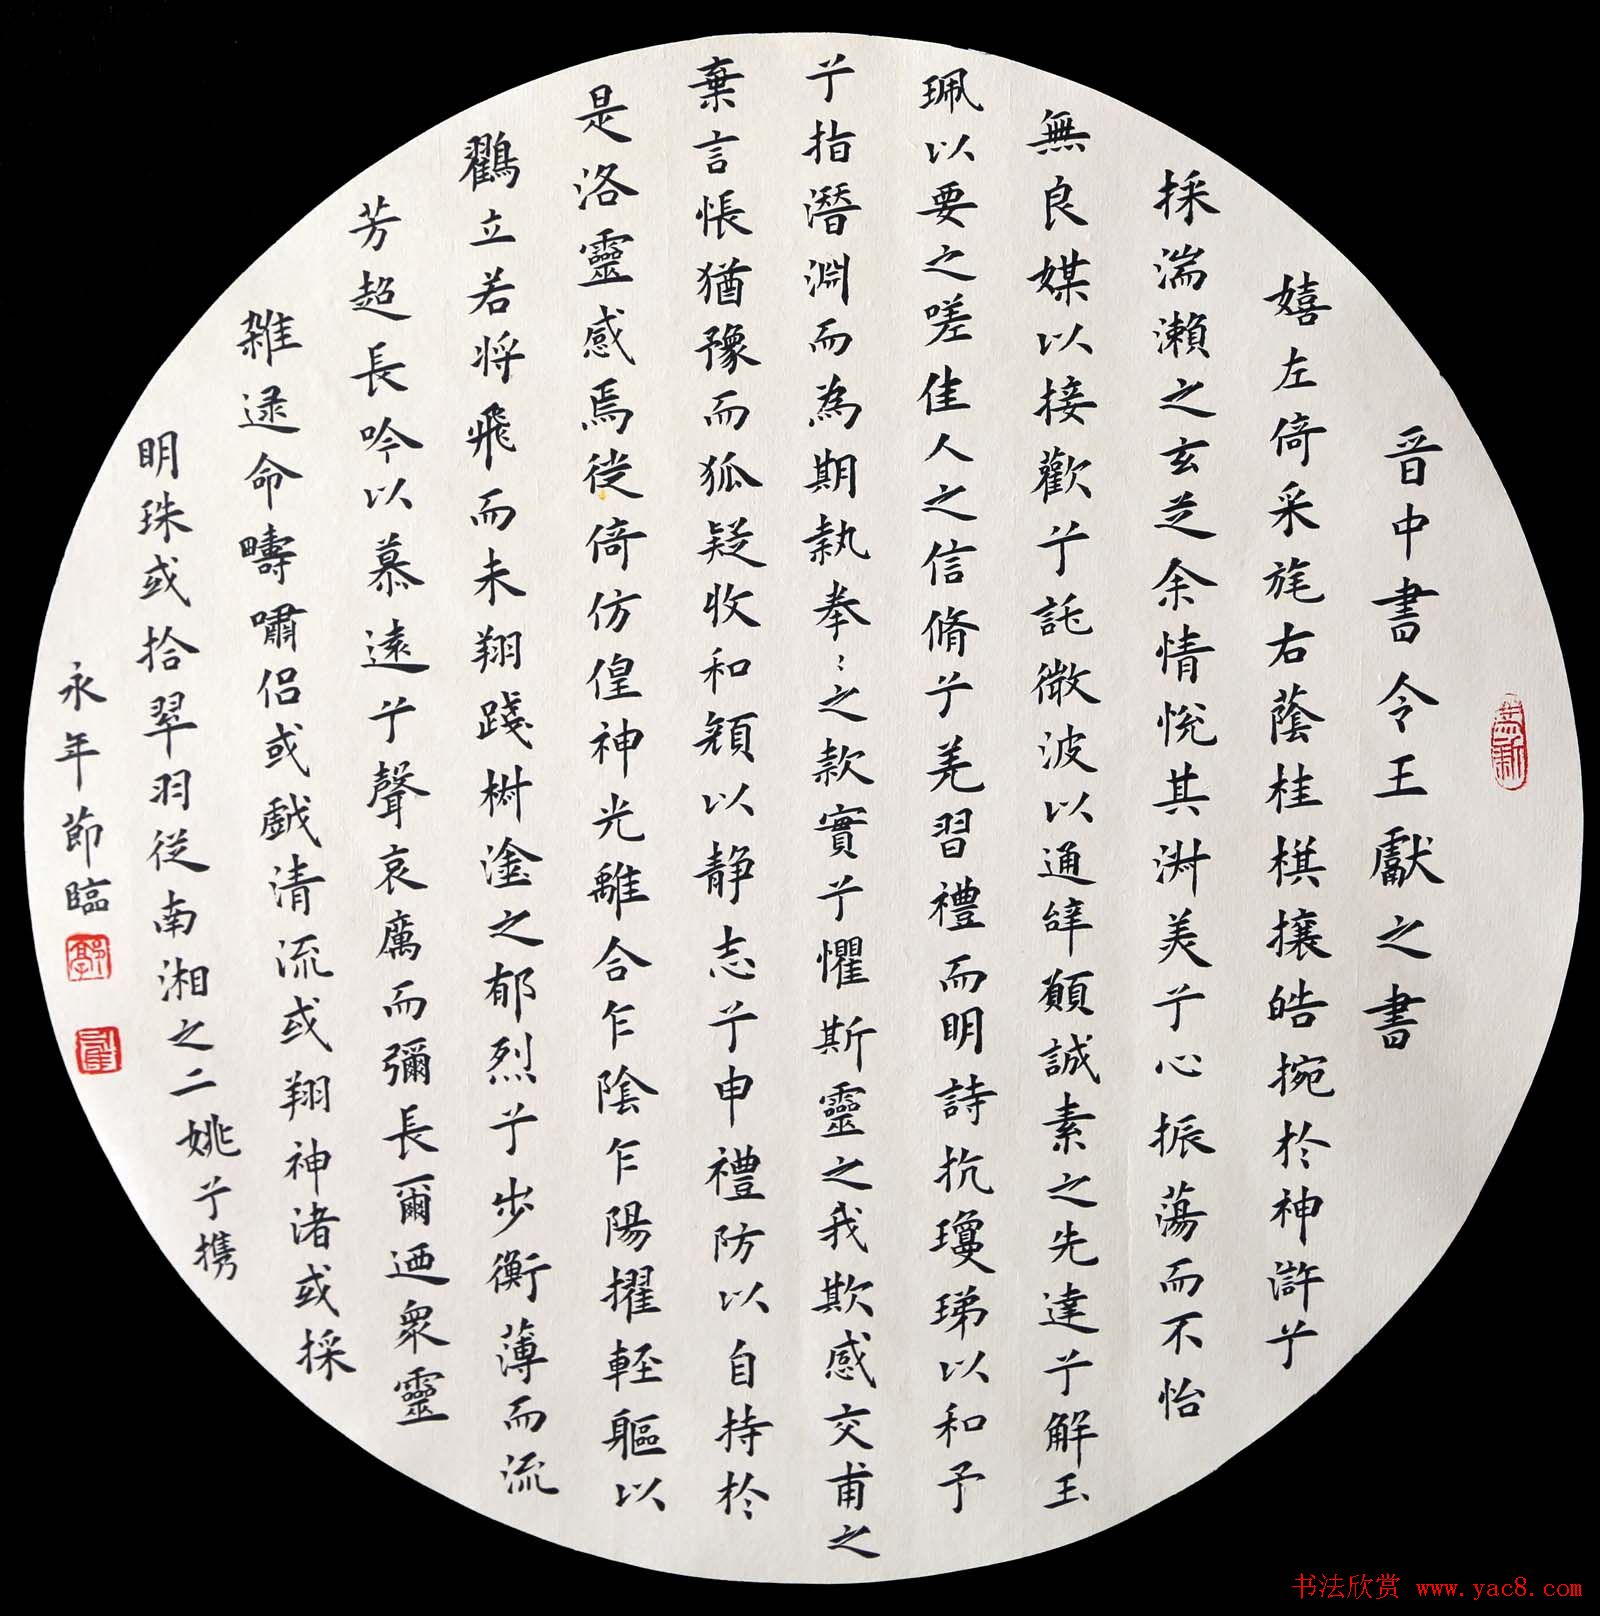 晋中書令王獻之書
嬉左倚采旄右蔭桂棋攘皓捥於神滸兮
採湍瀨之玄芝余情悅其淋美兮心振蕩而不怡
無良媒以接歡兮託微波以通辞願誠素之先達兮解玉
珮以要之嗟佳人之信脩兮羌習禮而明詩抗瓊珶以和予
兮指潛淵而為期執奉〻之款實兮懼斯靈之我欺感交甫之
棄言悵猶豫而狐疑收和顏以静志兮申禮防以自持於
是洛靈感焉徙倚仿偟神光離合乍陰乍陽擢輕軀以
鸛立若将飛而未翔踐椒塗之郁烈兮步衡薄而流
芳超長吟以慕遠兮聲哀厲而彌長爾迺衆靈
雜逯命疇嘯侶或戲清流或翔神渚或採
明珠或拾翠羽從南湘之二姚兮携
永年節臨
书法欣赏 www.yac8.com